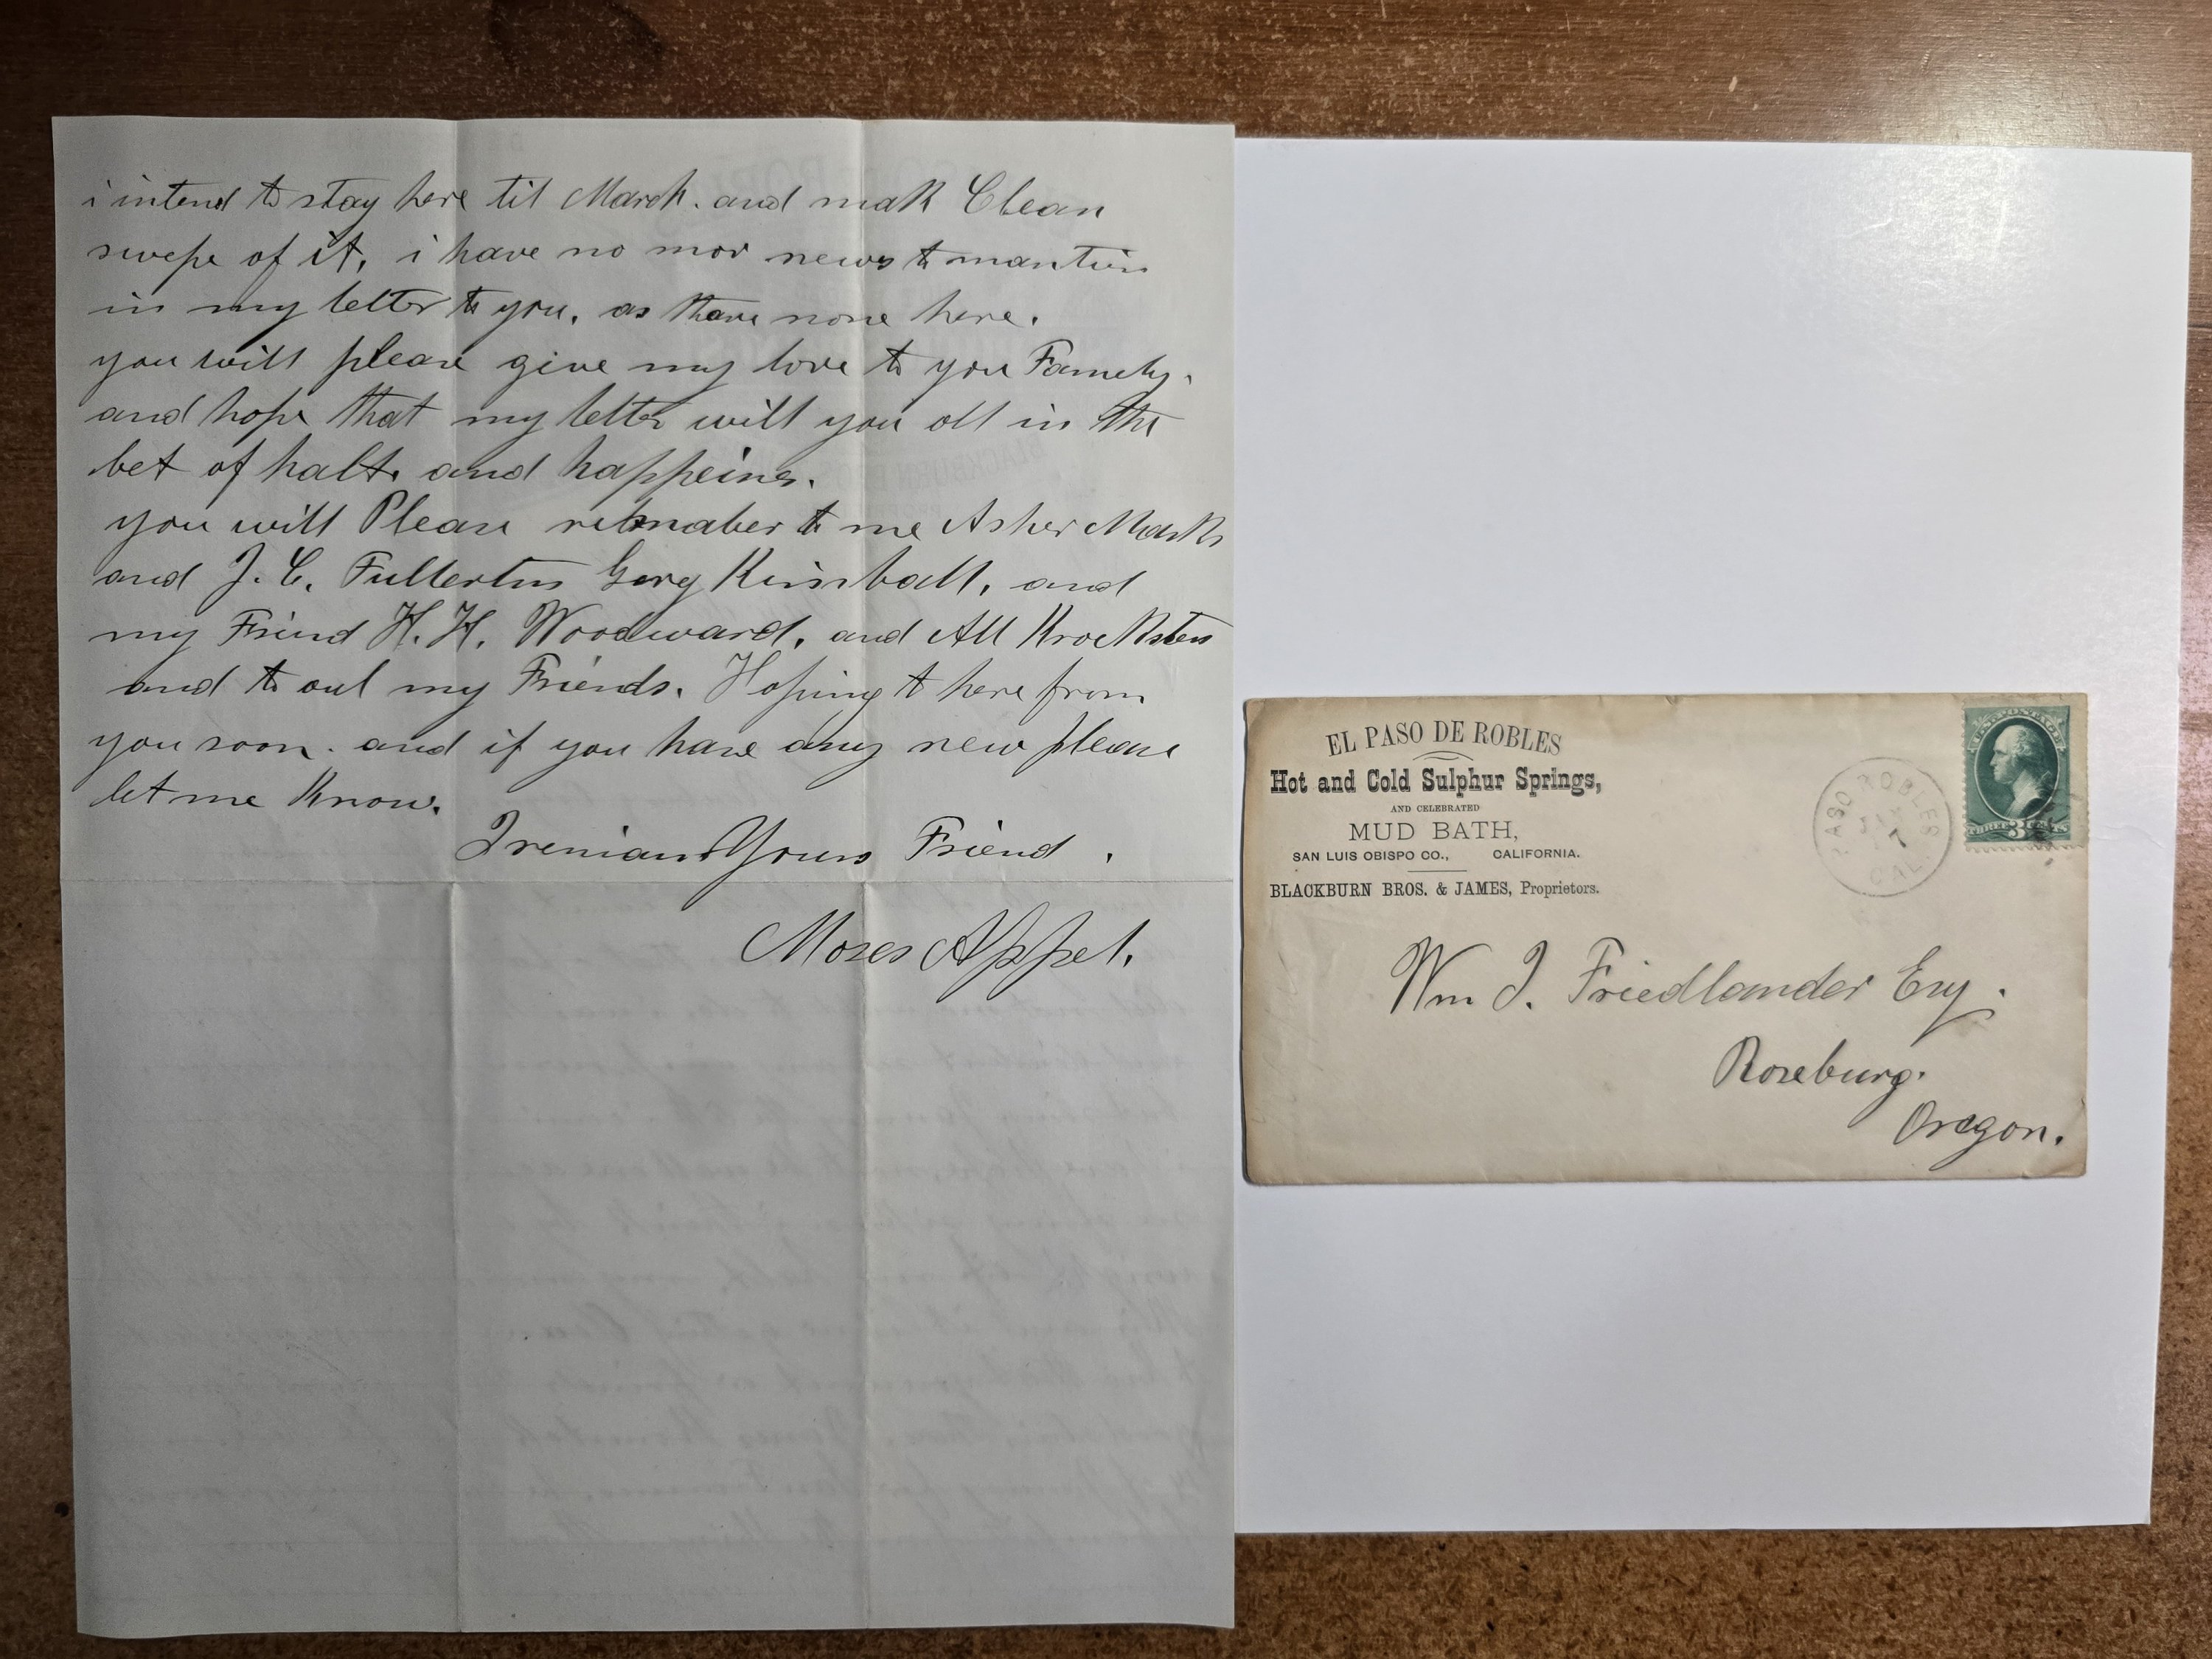 i intend to stay here til March. and mak Clean
swepe of it, i have no mor news to mantion
in my letter to you. as thare none here.
you will please give my love to you Famely.
and hope that my letter will you all in the
bet of halt. and happeins.
you will Please rebmaber to me Asher Marks
and J. C. Fullerton Gorg Kimball, and
my Friend H. H. Woodward, and All
and to aul my Friends. Hoping to here from
you soon. and if you have any new please
let me Know.
Yours Friend.
Moses Appel.
EL PASO DE ROBLES
Hot and Cold Sulphur Springs,
AND CELEBRATED
MUD BATH,
SAN LUIS OBISPO CO., CALIFORNIA.
BLACKBURN BROS. & JAMES, Proprietors.
PASO ROBLES
JAN
7
CAL.
U.S. POSTAGE
THREE 3 CENTS
Wm I. Friedlander Esq.
Roseburg.
Oregon.